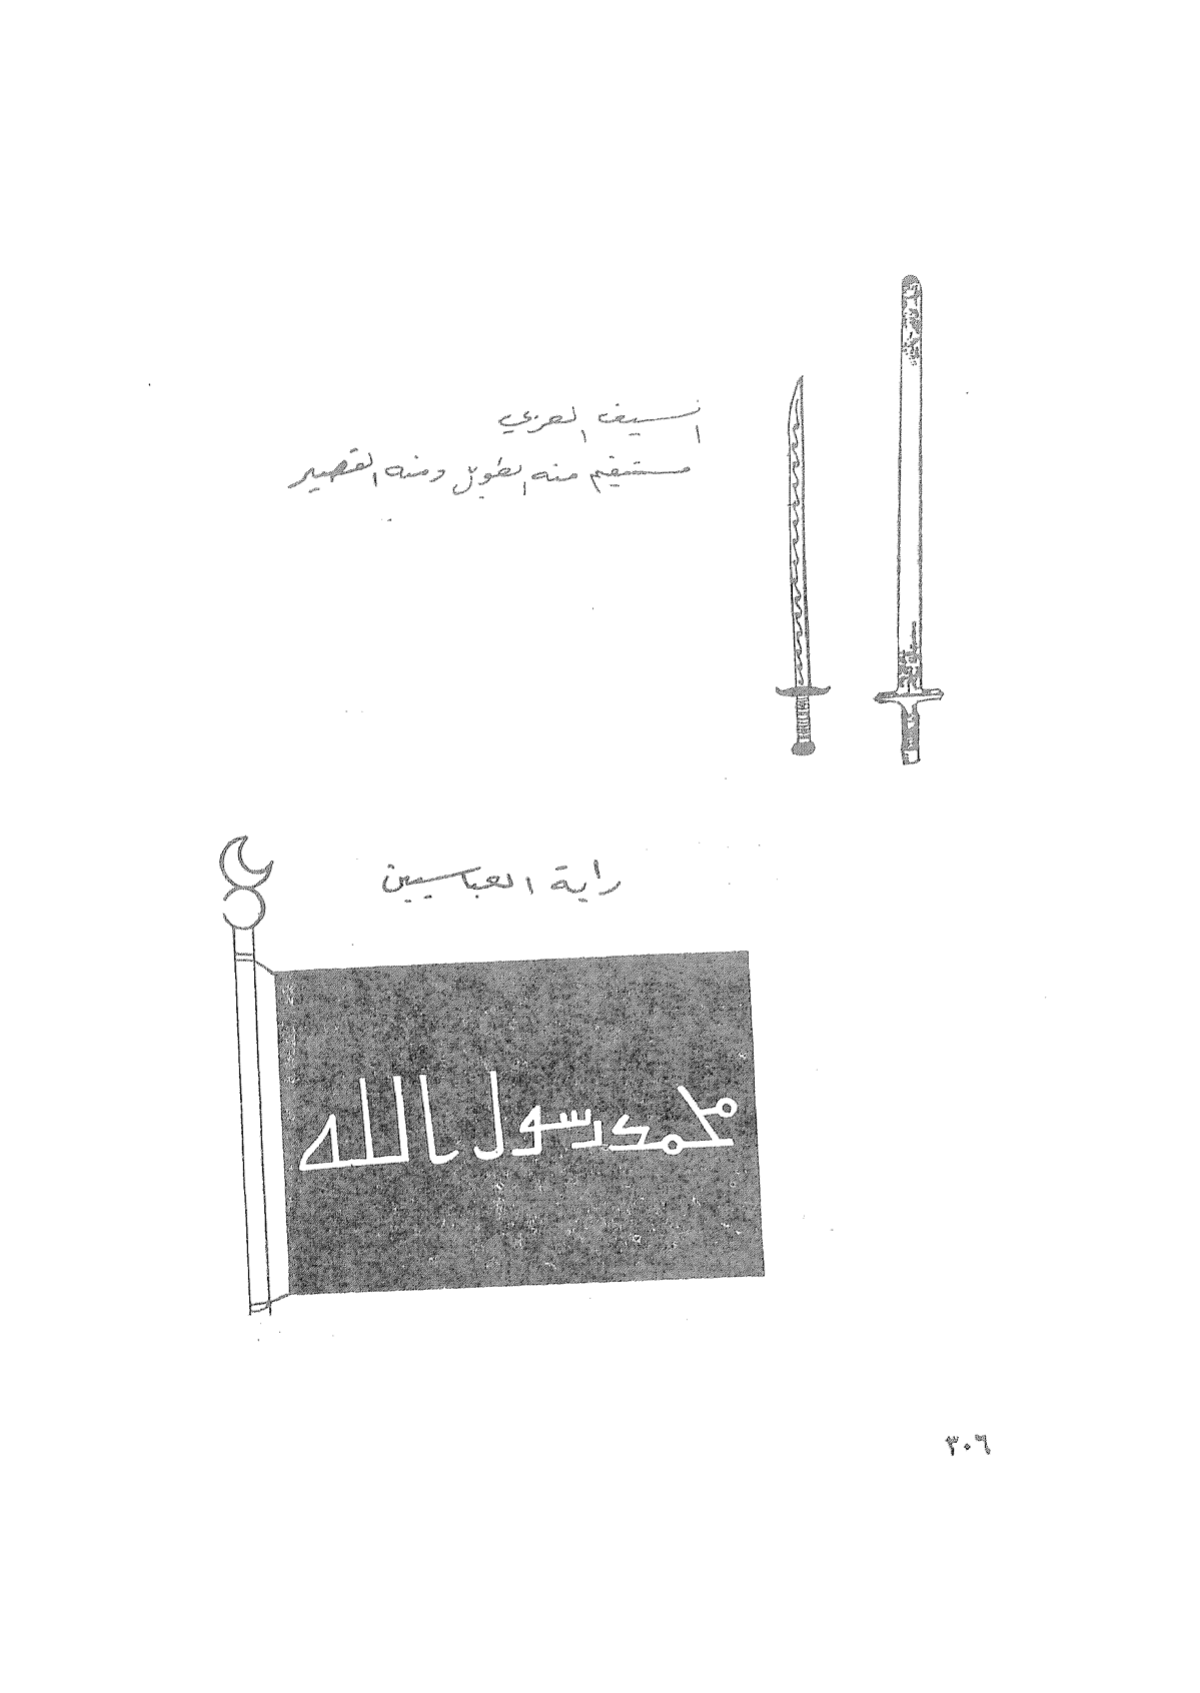 السيف العربي
مستقيم منه الطويل ومنه القصير
راية العباسيين
محمد رسول الله
٣٠٦